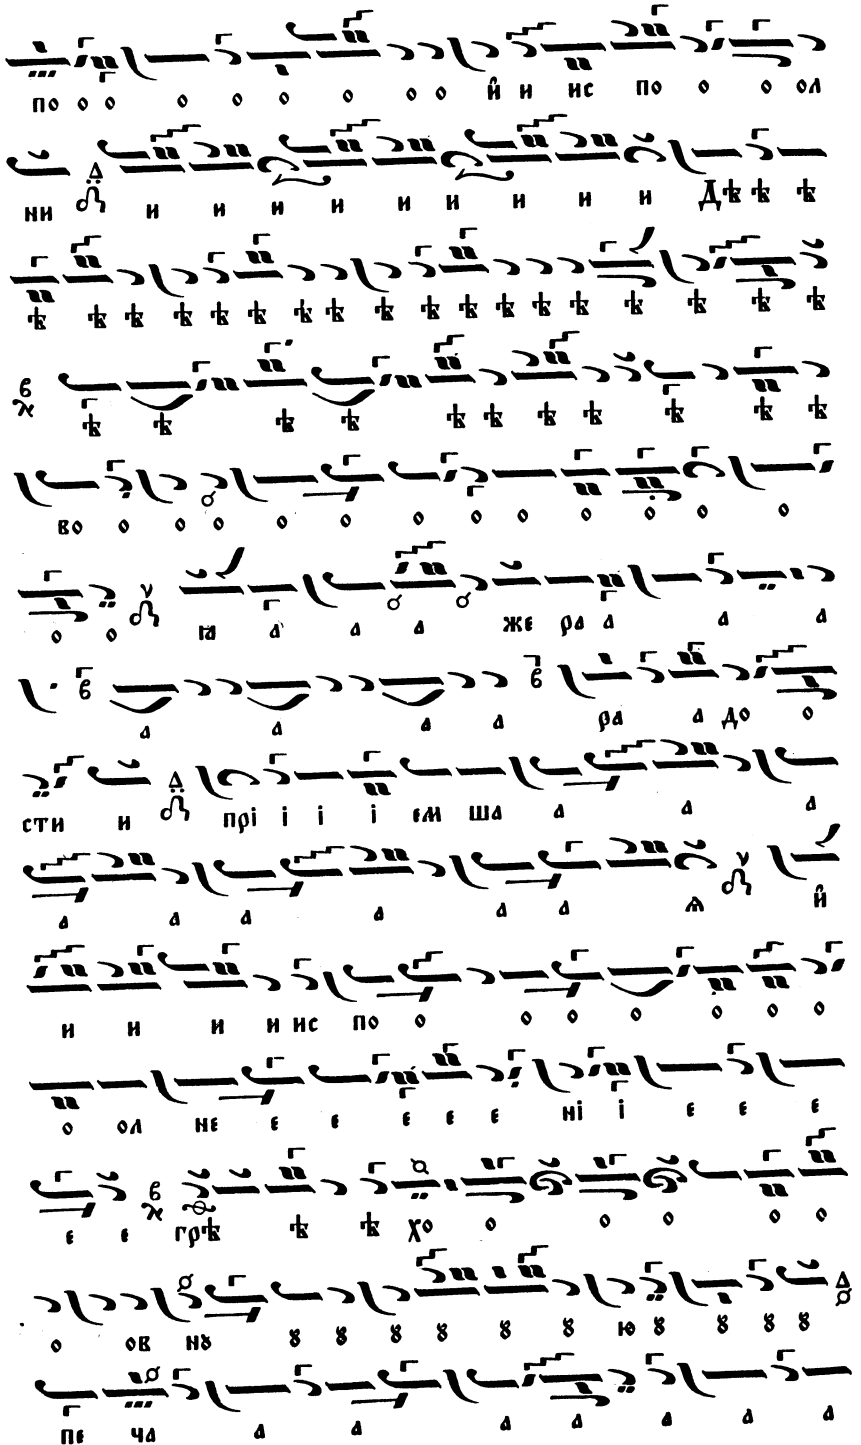 по о о о о о о о о й и ис по о о ол
ни и и и и и и и и и дѣ ѣ ѣ
ѣ ѣ ѣ ѣ ѣ ѣ ѣ ѣ ѣ ѣ ѣ ѣ ѣ ѣ ѣ ѣ ѣ ѣ
ѣ ѣ ѣ ѣ ѣ ѣ ѣ ѣ ѣ ѣ ѣ
во о о о о о о о о о о о о
о о ꙗ а а а же ра а а а
а а а а ра а до о
сти и прі і і і єм ша а а а
а а а а а а ѧ й
и и и и ис по о о о о о о о
о ол не є є є є є є ні і є є є
є є грѣ ѣ ѣ хо о о о о о
о ов нꙋ ꙋ ꙋ ꙋ ꙋ ꙋ ꙋ ю ꙋ ꙋ ꙋ ꙋ
пе ча а а а а а а а